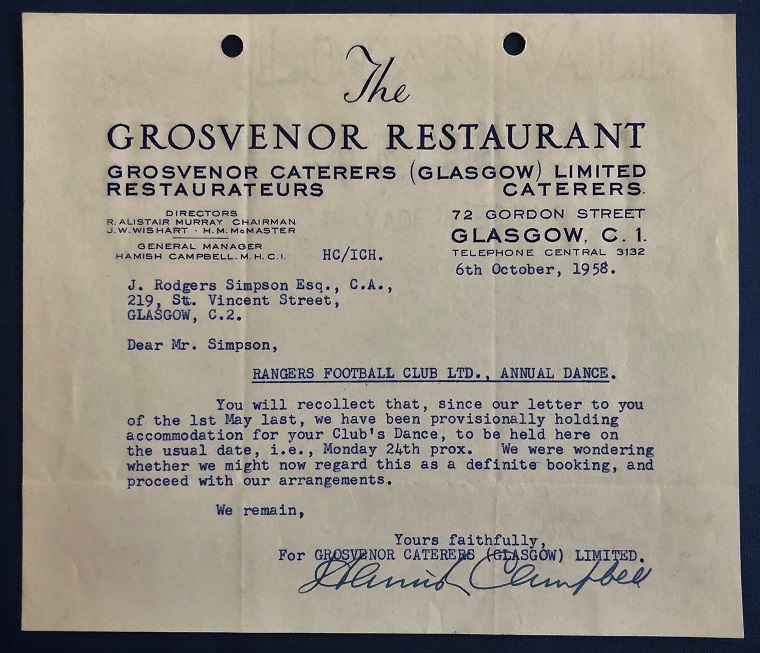 The
GROSVENOR RESTAURANT
GROSVENOR CATERERS (GLASGOW) LIMITED
RESTAURATEURS CATERERS.
DIRECTORS
R. ALISTAIR MURRAY CHAIRMAN
J. W. WISHART · H. M. McMASTER
GENERAL MANAGER
HAMISH CAMPBELL. M. H. C. I.
72 GORDON STREET
GLASGOW, C. 1.
TELEPHONE CENTRAL 3132
HC/ICH.
6th October, 1958.
J. Rodgers Simpson Esq., C.A.,
219, St. Vincent Street,
GLASGOW, C.2.
Dear Mr. Simpson,
RANGERS FOOTBALL CLUB LTD., ANNUAL DANCE.
You will recollect that, since our letter to you
of the 1st May last, we have been provisionally holding
accommodation for your Club's Dance, to be held here on
the usual date, i.e., Monday 24th prox. We were wondering
whether we might now regard this as a definite booking, and
proceed with our arrangements.
We remain,
Yours faithfully,
For GROSVENOR CATERERS (GLASGOW) LIMITED.
Hamish Campbell